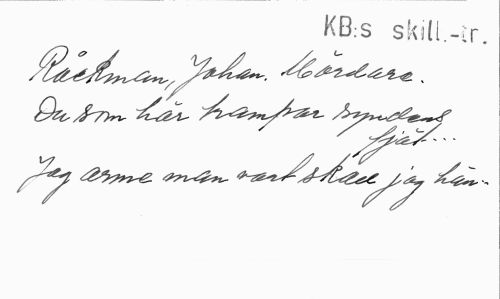 KB:s skill.-tr.
Råckman, Johan. Mördare.
Du som här trampar syndens
fjät...
Jag arme man vart skall jag hän-